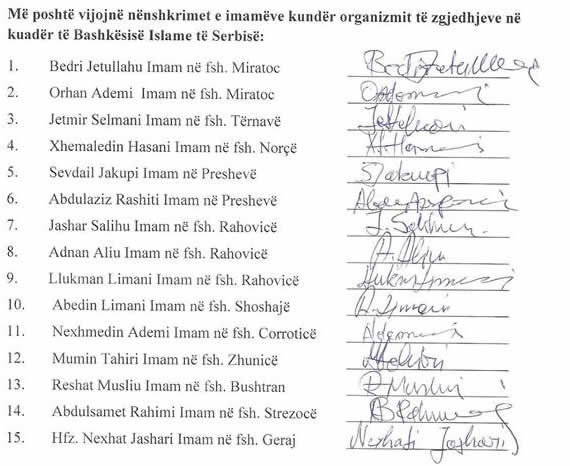 Më poshtë vijojnë nënshkrimet e imamëve kundër organizmit të zgjedhjeve në
kuadër të Bashkësisë Islame të Serbisë:
1. Bedri Jetullahu Imam në fsh. Miratoc
2. Orhan Ademi Imam në fsh. Miratoc
3. Jetmir Selmani Imam në fsh. Tërnavë
4. Xhemaledin Hasani Imam në fsh. Norçë
5. Sevdail Jakupi Imam në Preshevë S Jakupi
6. Abdulaziz Rashiti Imam në Preshevë
7. Jashar Salihu Imam në fsh. Rahovicë
8. Adnan Aliu Imam në fsh. Rahovicë
9. Llukman Limani Imam në fsh. Rahovicë
10. Abedin Limani Imam në Shoshajë
11. Nexhmedin Ademi Imam në Corroticë
12. Mumin Tahiri Imam në fsh. Zhunicë
13. Reshat Musliu Imam në fsh. Bushtran
14. Abdulsamet Rahimi Imam në fsh. Strezocë
15. Hfz. Nexhat Jashari Imam në fsh. Geraj